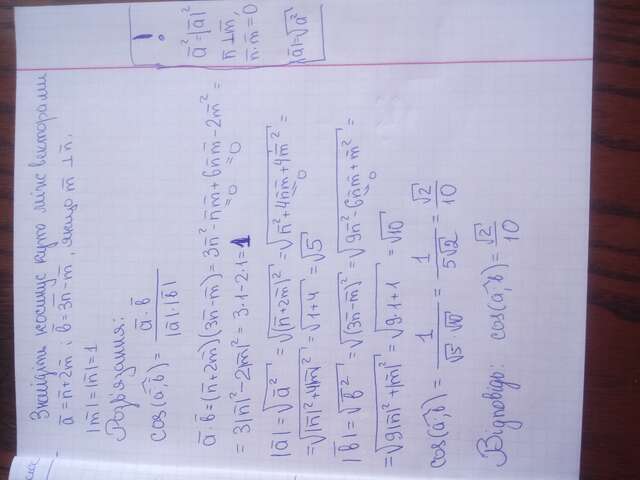 !
a̅²=|a̅|²
n̅⊥m̅,
n̅·m̅=0
|a̅|=√a̅²
Знайдіть косинус кута між векторами
a̅=n̅+2m̅ і b̅=3n̅-m̅, якщо m̅⊥n̅,
|m̅|=|n̅|=1
Розв'язання:
cos(a̅;b̅)= a̅·b̅ / |a̅|·|b̅|
a̅·b̅=(n̅+2m̅)(3n̅-m̅)=3n̅²-n̅m̅+6n̅m̅-2m̅²=
=0 =0
=3|n̅|²-2|m̅|²=3·1-2·1=1
|a̅|=√a̅²=√(n̅+2m̅)²=√n̅²+4n̅m̅+4m̅²=
=0
=√|n̅|²+4|m̅|²=√1+4=√5
|b̅|=√b̅²=√(3n̅-m̅)²=√9n̅²-6n̅m̅+m̅²=
=0
=√9|n̅|²+|m̅|²=√9·1+1=√10
cos(a̅;b̅)= 1/√5·√10 = 1/5√2 = √2/10
Відповідь: cos(a̅;b̅)= √2/10